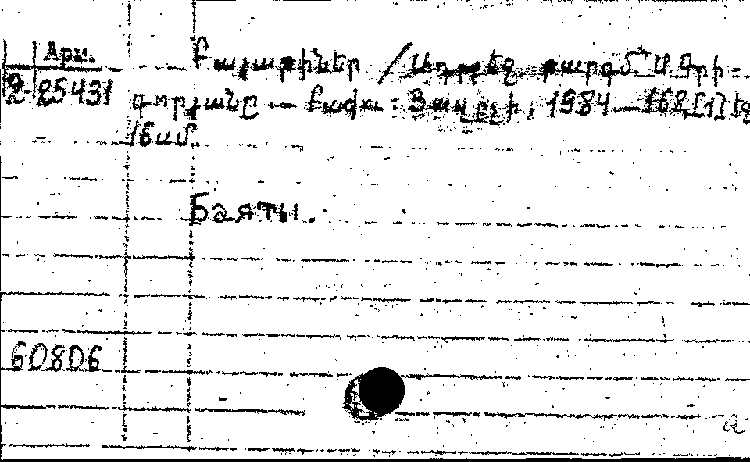 Арм.
2 25431
Բայաթիներ / Ադրբեջ. թարգմ. Ա. Գրի-
գորյանը. — Բաքու : Յազըչի, 1984. — 168 էջ
16սմ.
Баяты.
60806
a